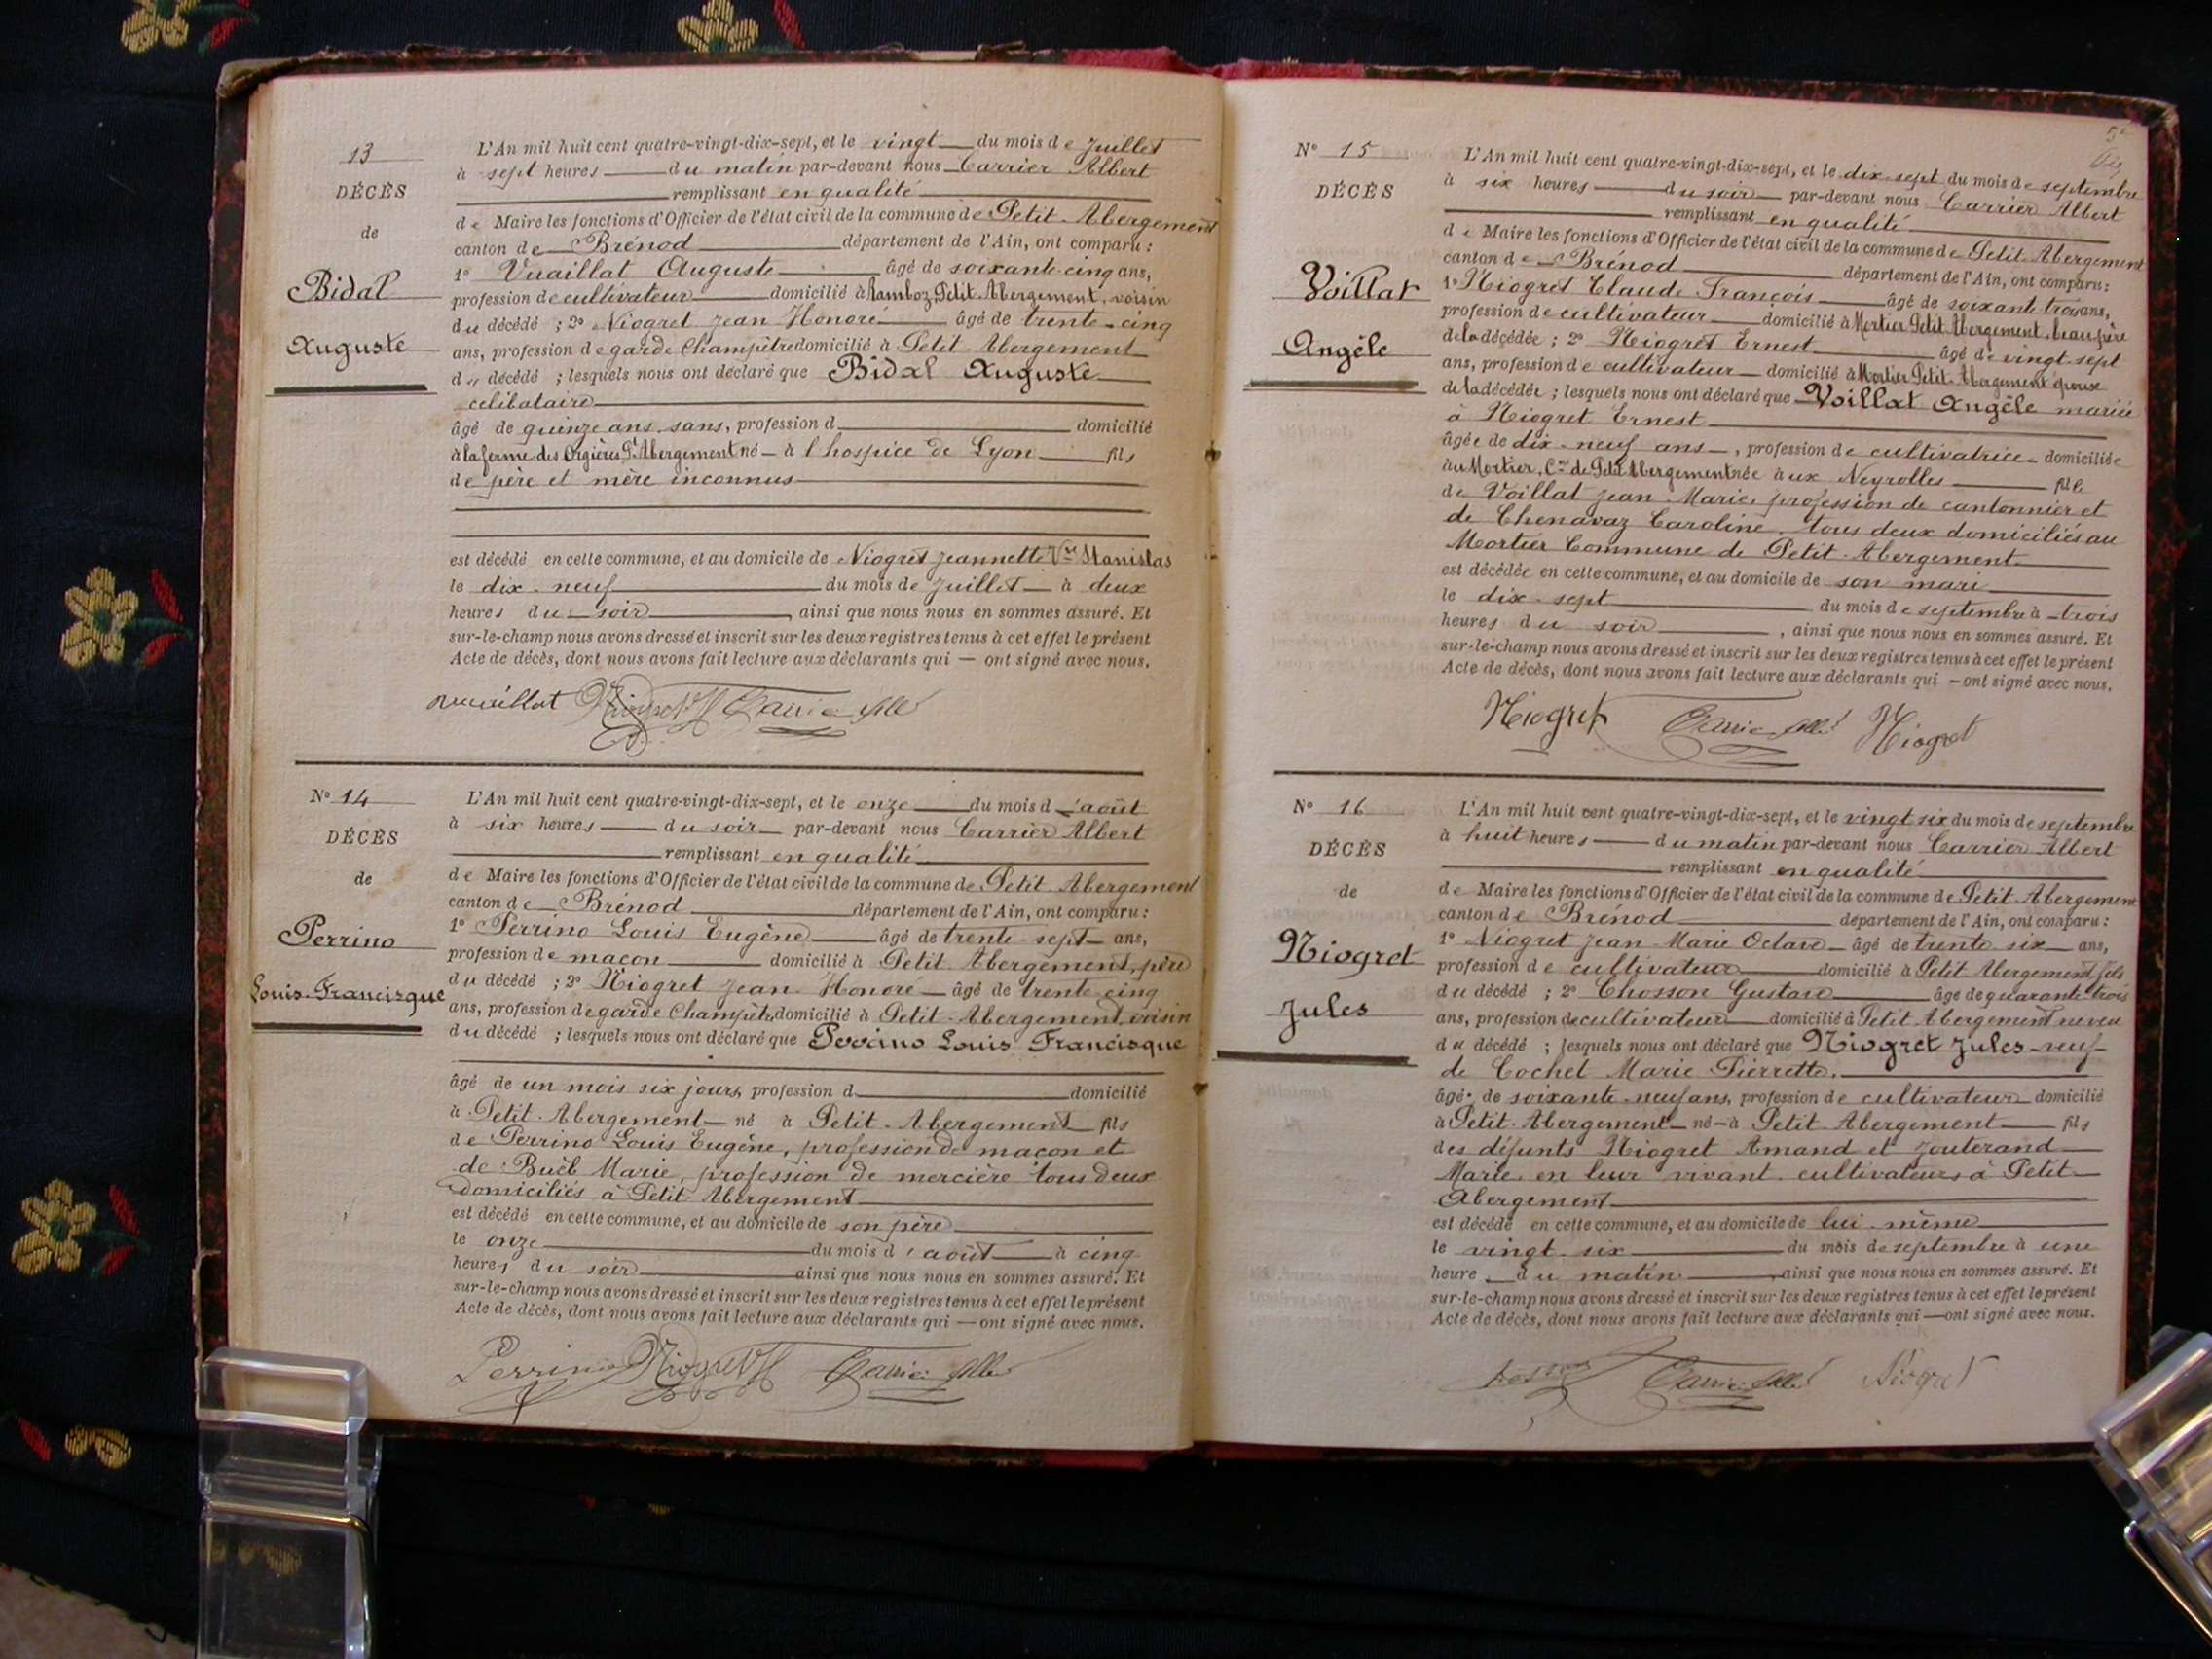 13
DÉCÈS
de
Bidal
Auguste
L'An mil huit cent quatre-vingt-dix-sept, et le vingt du mois de Juillet
à sept heures du matin par-devant nous Carrier Albert
remplissant en qualité
de Maire les fonctions d'Officier de l'état civil de la commune de Petit-Abergement
canton de Brénod département de l'Ain, ont comparu :
1° Vuaillat Auguste âgé de soixante-cinq ans,
profession de cultivateur domicilié à Ramboz, Petit-Abergement, voisin
du décédé ; 2° Niogret Jean Honoré âgé de trente-cinq
ans, profession de garde Champètre domicilié à Petit-Abergement
d" décédé ; lesquels nous ont déclaré que Bidal Auguste
celibataire
âgé de quinze ans, sans, profession d domicilié
à la ferme des Orgières Pt Abergement né à l'hospice de Lyon fils
de père et mère inconnus
est décédé en cette commune, et au domicile de Niogret Jeannette Vve Stanislas
le dix-neuf du mois de Juillet à deux
heures du soir, ainsi que nous nous en sommes assuré. Et
sur-le-champ nous avons dressé et inscrit sur les deux registres tenus à cet effet le présent
Acte de décès, dont nous avons fait lecture aux déclarants qui — ont signé avec nous.
Vuaillat Niogret JH Carrier Albt
N° 14
DÉCÈS
de
Perrino
Louis-Francisque
L'An mil huit cent quatre-vingt-dix-sept, et le onze du mois d'août
à six heures du soir par-devant nous Carrier Albert
remplissant en qualité
de Maire les fonctions d'Officier de l'état civil de la commune de Petit-Abergement
canton de Brénod département de l'Ain, ont comparu :
1° Perrino Louis Eugène âgé de trente-sept ans,
profession de maçon domicilié à Petit-Abergement, père
du décédé ; 2° Niogret Jean Honoré âgé de trente-cinq
ans, profession de garde Champètre domicilié à Petit-Abergement, voisin
du décédé ; lesquels nous ont déclaré que Perrino Louis Francisque
âgé de un mois six jours, profession d domicilié
à Petit-Abergement né à Petit-Abergement fils
de Perrino Louis Eugène, profession de maçon et
de Buèb Marie, profession de mercière tous deux
domiciliés à Petit-Abergement
est décédé en cette commune, et au domicile de son père
le onze du mois d'août à cinq
heures du soir ainsi que nous nous en sommes assuré. Et
sur-le-champ nous avons dressé et inscrit sur les deux registres tenus à cet effet le présent
Acte de décès, dont nous avons fait lecture aux déclarants qui — ont signé avec nous.
Perrino Niogret JH Carrier Albt
N° 15
DÉCÈS
Voillat
Angèle
L'An mil huit cent quatre-vingt-dix-sept, et le dix-sept du mois de septembre
à six heures du soir par-devant nous Carrier Albert
remplissant en qualité
de Maire les fonctions d'Officier de l'état civil de la commune de Petit-Abergement
canton de Brénod département de l'Ain, ont comparu :
1° Niogret Claude François âgé de soixante-trois ans,
profession de cultivateur domicilié à Mortier Petit-Abergement, beau-père
de la décédée ; 2° Niogret Ernest âgé de vingt-sept
ans, profession de cultivateur domicilié à Mortier Petit-Abergement époux
de la décédée ; lesquels nous ont déclaré que Voillat Angèle mariée
à Niogret Ernest
âgée de dix-neuf ans, profession de cultivatrice domiciliée
au Mortier, Cne de Petit Abergement née aux Neyrolles fille
de Voillat Jean-Marie, profession de cantonnier et
de Chenavaz Caroline, tous deux domiciliés au
Mortier Commune de Petit-Abergement
est décédée en cette commune, et au domicile de son mari
le dix-sept du mois de septembre à trois
heures du soir, ainsi que nous nous en sommes assuré. Et
sur-le-champ nous avons dressé et inscrit sur les deux registres tenus à cet effet le présent
Acte de décès, dont nous avons fait lecture aux déclarants qui — ont signé avec nous.
Niogret Carrier Albt Niogret
N° 16
DÉCÈS
de
Niogret
Jules
L'An mil huit cent quatre-vingt-dix-sept, et le vingt-six du mois de septembre
à huit heures du matin par-devant nous Carrier Albert
remplissant en qualité
de Maire les fonctions d'Officier de l'état civil de la commune de Petit-Abergement
canton de Brénod département de l'Ain, ont comparu :
1° Niogret Jean-Marie Octave âgé de trente-six ans,
profession de cultivateur domicilié à Petit-Abergement, fils
du décédé ; 2° Chosson Gustave âgé de quarante-trois
ans, profession de cultivateur domicilié à Petit-Abergement neveu
du décédé ; lesquels nous ont déclaré que Niogret Jules veuf
de Cochet Marie Pierrette.
âgé de soixante-neuf ans, profession de cultivateur domicilié
à Petit-Abergement né à Petit-Abergement fils
des défunts Niogret Amand et Jouterand
Marie en leur vivant cultivateurs à Petit-
Abergement
est décédé en cette commune, et au domicile de lui-même
le vingt-six du mois de septembre à une
heure du matin, ainsi que nous nous en sommes assuré. Et
sur-le-champ nous avons dressé et inscrit sur les deux registres tenus à cet effet le présent
Acte de décès, dont nous avons fait lecture aux déclarants qui — ont signé avec nous.
Carrier Albt Niogret